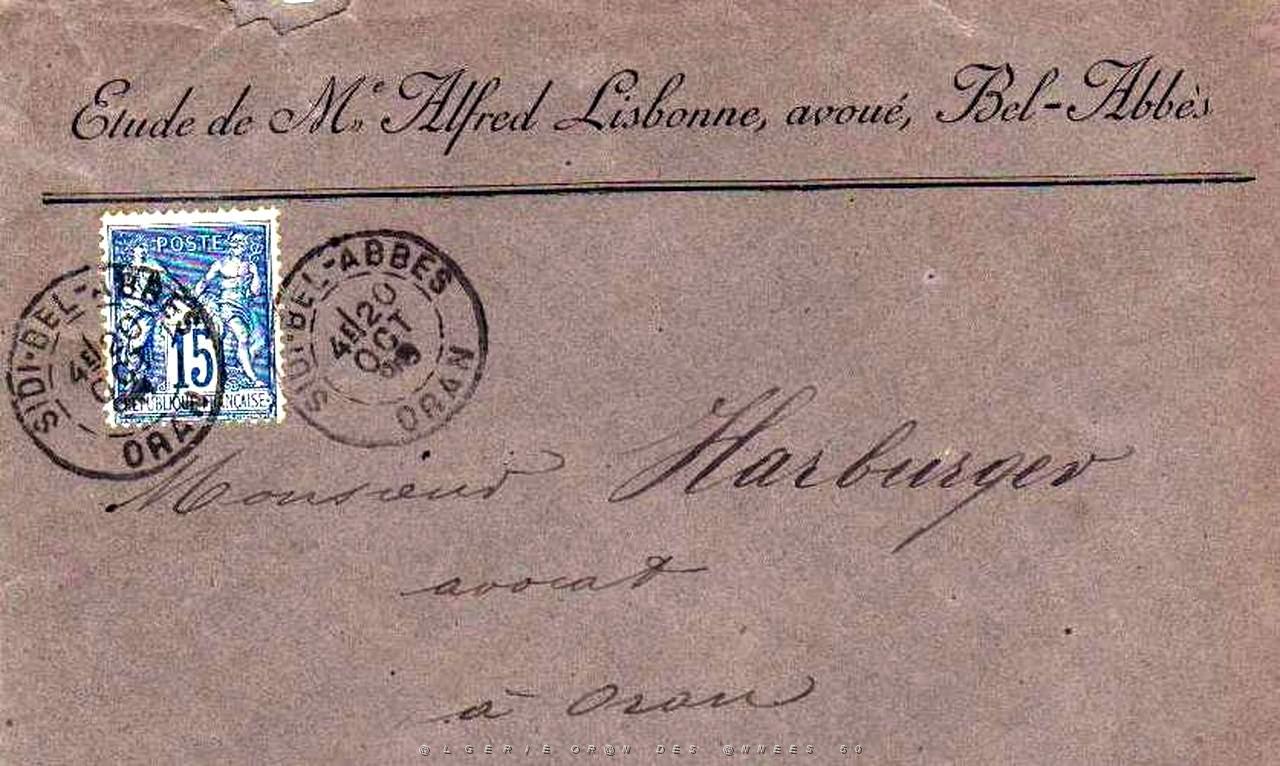 Etude de Me Alfred Lisbonne, avoué, Bel-Abbès
POSTE
15
REPUBLIQUE FRANCAISE
SIDI-BEL-ABBES
4E/20
OCT
ORAN
SIDI-BEL-ABBES
4E/20
OCT
ORAN
Monsieur Harburger
avocat
à Oran
@LGERIE OR@N DES @NNEES 50